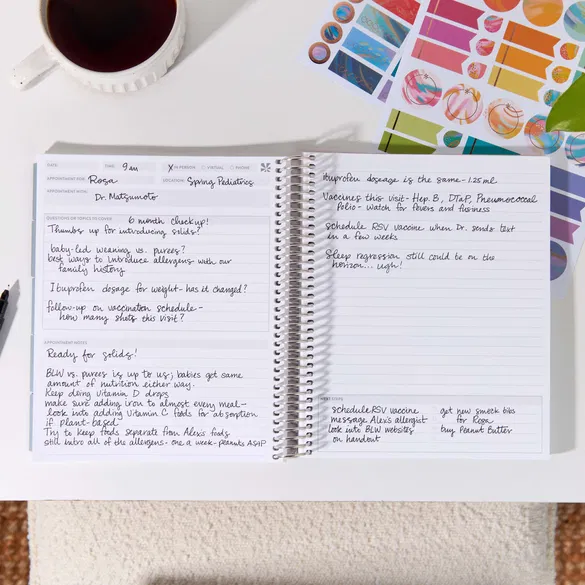 DATE: TIME: 9 am X IN PERSON VIRTUAL PHONE
APPOINTMENT FOR: Rosa LOCATION: Spring Pediatrics
APPOINTMENT WITH: Dr. Matsumoto
QUESTIONS OR TOPICS TO COVER 6 month checkup!
Thumbs up for introducing solids?
baby-led weaning vs. purees?
best ways to introduce allergens - with our
family history
Ibuprofen dosage for weight - has it changed?
follow-up on vaccination schedule -
how many shots this visit?
APPOINTMENT NOTES
Ready for solids!
BLW vs. purees is up to us; babies get same
amount of nutrition either way.
Keep doing vitamin D drops
make sure adding iron to almost every meal -
look into adding vitamin C foods for absorption
if plant-based
Try to keep foods separate from Alex's foods
still intro all of the allergens - one a week - peanuts ASAP
Ibuprofen doseage is the same - 1.25 ml
Vaccines this visit - Hep. B, DTaP, Pneumococcal
Polio - watch for fevers and fussiness
schedule RSV vaccine when Dr. sends text
in a few weeks
Sleep regression still could be on the
horizon... ugh!
NEXT STEPS
schedule RSV vaccine
message Alex's allergist
look into BLW websites
on handout
get new smock bibs
for Rosa
buy Peanut Butter